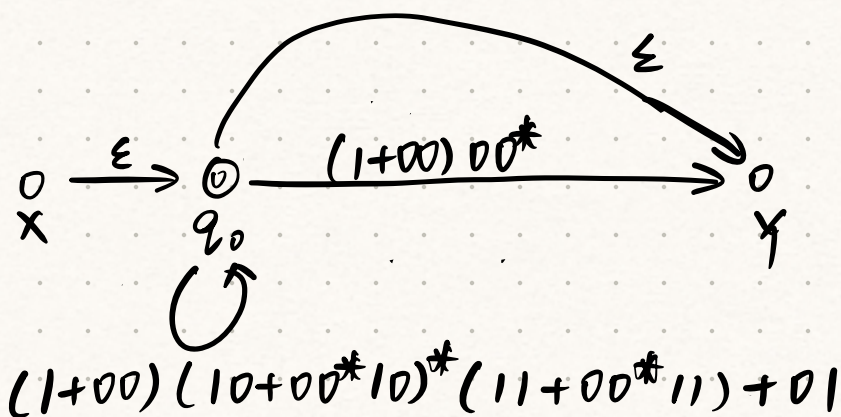 ε
ε (1+00)00*
X q₀ Y
(1+00)(10+00*10)*(11+00*11)+01